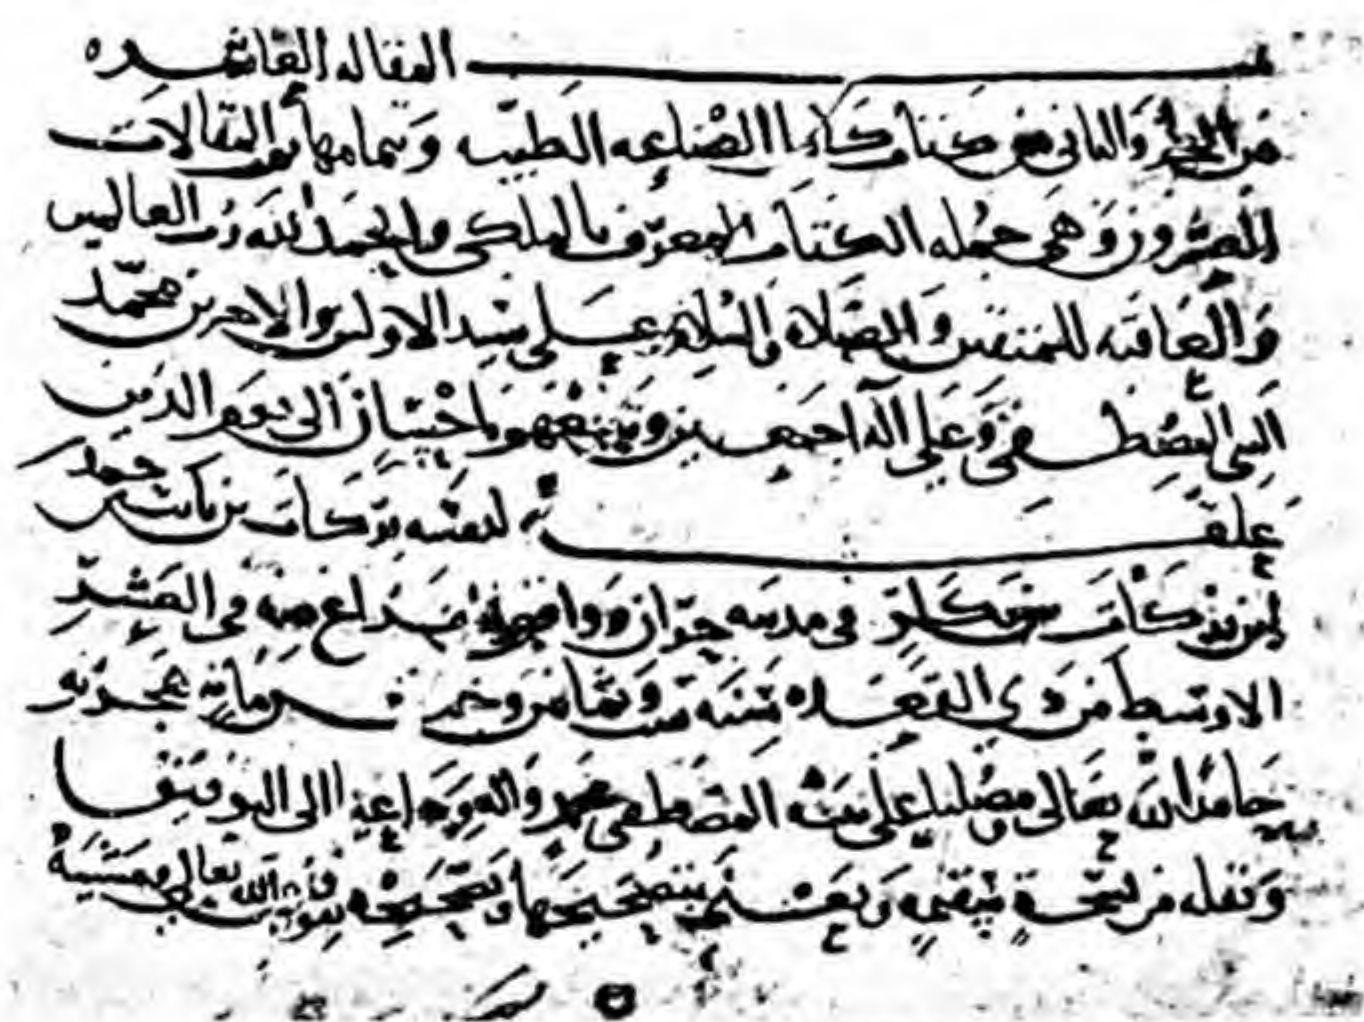 تمت المقاله العاشره
من الجزء الثاني من كتاب كامل الصناعه الطبيه وبتمامها تمت المقالات
العشرون وهي جمله الكتاب المعروف بالملكي والحمد لله رب العالمين
والعاقبه للمتقين والصلاة والسلام على سيد الاولين والاخرين محمد
النبي المصطفى وعلى آله اجمعين وتابعيهم باحسان الى يوم الدين
علقه لنفسه بركات بن ثابت
بن بركات في مدينه حران ووافق الفراغ منه في العشر
الاوسط من ذي القعده سنه ست وثمانين وخمس مايه هجريه
حامدا لله تعالى ومصليا على نبيه المصطفى محمد وآله
ونقله من نسخة سقيمه ويعتني بتصحيحها وتصحيحه بتوفيق الله تعالى ومشيته